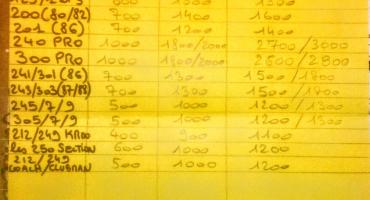 200 (80/82) 700 1400 1600
201 (86) 700 1200 1400
240 PRO 1000 1800/2000 2700/3000
300 PRO 1000 1800/2000 2600/2800
241/301 (86) 700 1300 1500/1800
243/303 (87/88) 700 1300 1500/1800
245/7/9 500 1000 1200/1300
305/7/9 500 1000 1200/1300
212/249 KROO 400 900 1100
les 250 SECTION 600 1000 1200
212/249
COACH/CLUBMAN 500 1000 1200